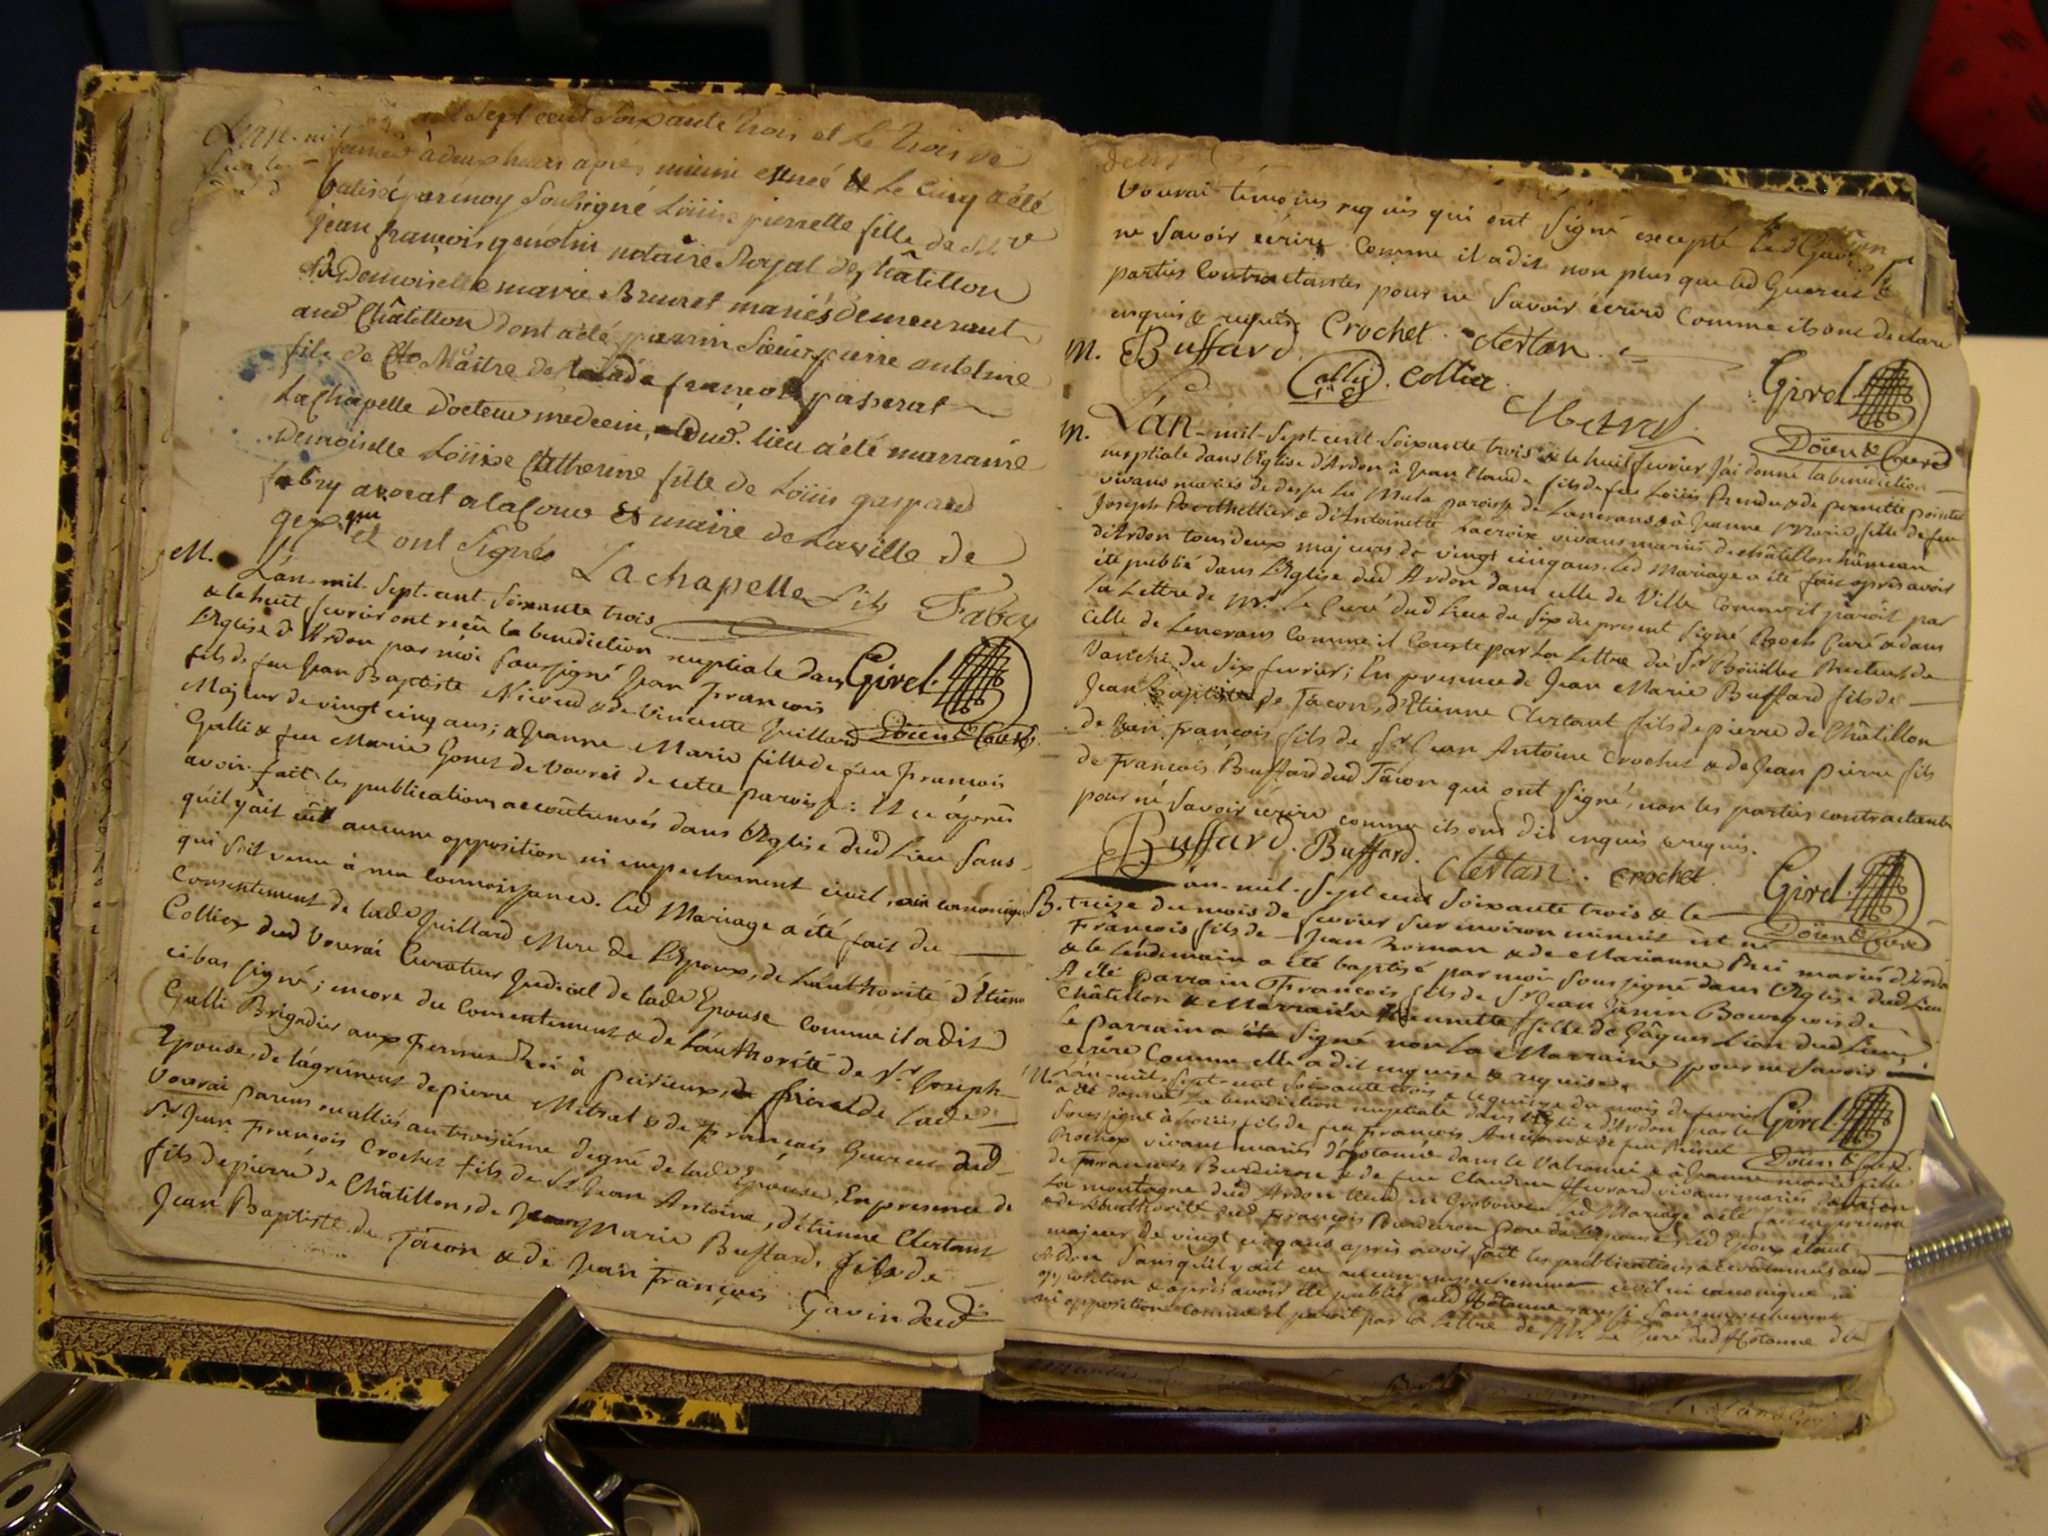 mil Sept cent Soixante trois et le trois de
à deux heures après midi est née & Le cinq a été
batisé par moy Soubsigné Loüise pierrette fille de
jean françois genolin notaire Royal de Châtillon
& Demoiselle marie Brunet mariés demeurant
aud Châtillon dont a été parrin Sieur pierre antelme
fils de Maître françois passerat
La Chapelle Docteur medecin, dud. lieu a été marraine
Demoiselle Loüise Catherine fille de Loüis gaspard
fabry avocat a la Cour & maire de La ville de
gex qui et ont Signés
Lachapelle fils Fabry
M. L'an mil Sept cent Soixante trois
& le huit fevrier ont reçu la benediction nuptiale dans
L'Eglise d'Ardon par moi Soussigné Jean François
fils de feu Jean Baptiste Nicoud & de Vincente Juillard
Majeur de vingt cinq ans; & Jeanne Marie fille de feu François
Galli & feu Marie Gonet de Vouvrai de cette paroisse: Et ce après
avoir fait les publications accoûtumés dans L'Eglise dud Lieu Sans
qu'il y ait eût aucune opposition ni empechement civil, ni canonique
qui Soit venu à ma connoissance. Led Mariage a été fait du
Consentement de lad Juillard Mere de L'Epoux, de L'authorité d'Etienne
Colliex dud Vouvrai Curateur Judicial de lad Epouse comme il a dit
ci-bas signé; encore du Consentement & de L'authorité de Sr Joseph
Galli Brigadier aux Fermes du Roi à frere de lad
Epouse, de l'agrement de pierre Mitral & de François Guerret dud
Vouvrai parens ou alliés au troisiéme degré de lad Epouse. En presence de
Sr Jean François Crochet fils de Sr Jean Antoine, d'Etienne Clertant
fils de pierre de Châtillon, de Jean Marie Buffard, fils de
Jean Baptiste de Tacon & de Jean François Gavin dud
Girel
Doïen & Curé
Vouvrai témoins requis qui ont Signé excepté led Gavin
ne Savoir écrire comme il a dit non plus que led Guerret &
parties Contractantes pour ne Savoir écrire comme ils ont declaré
enquis & requis. Crochet. Clertan.
m. Buffard. Galliey. Colliex. Girel
Mitral Doïen & Curé
m. L'an mil Sept cent Soixante trois & le huit fevrier J'ai donné la benediction
nuptiale dans L'Eglise d'Ardon à Jean Claude fils de feu Loüis & de pernette
vivans mariés de dessu La Mula paroisse de Lancrans & à Jeanne Marie, fille de feu
Joseph & d'Antoinette Lacroix vivans mariés de châtillon
d'Ardon tous deux majeurs de vingt cinq ans. Led Mariage a été fait après avoir
été publié dans L'Eglise dud Ardon dans celle de Ville comme il paroit par
La Lettre de Mr. Le Curé dud Lieu du Six du present Signé Curé & dans
Celle de Lancrans Comme il Conste par La Lettre du Sr Boüillet Recteur de
Vanchi du Six fevrier; En presence de Jean Marie Buffard fils de
Jean Baptiste de Tacon, d'Etienne Clertant fils de pierre de Châtillon
de Jean François fils de Sr Jean Antoine Crochet & de Jean pierre fils
de François Buffard dud Tacon qui ont Signé, non les parties contractantes
pour ne Savoir écrire comme ils ont dit enquis & requis.
Buffard. Buffard. Clertan. Crochet. Girel
Doïen & Curé
B. L'an mil Sept cent Soixante trois & le
treize du mois de fevrier sur environ minuit est né
François fils de Jean Roman & de Marianne mariés d'Ardon
& le Lendemain a été baptisé par moi Soussigné dans L'Eglise dud Lieu
A été parrain François fils de Sr Jean Janin Bourgeois de
Châtillon & Marraine fille de Jâques Lion dud Lieu
le parrain a Signé non la Marraine pour ne Savoir
ecrire Comme elle a dit enquise & requise.
Girel
Doïen & Curé
M. L'an mil Sept cent Soixante trois & le quinze du mois de fevrier
a été donnée la benediction nuptiale dans L'Eglise d'Ardon par le
Soussigné à Loüis fils de feu François & de feu
vivant mariés d'hotonne dans le Valromei & à Jeanne marie fille
de François Burdeiron & de feu Claudine vivans mariés
La montagne dud Ardon Led Mariage a été fait
& de L'authorité dud François Burdeiron pere de L'Epouse, led Epoux étant
majeur de vingt cinq ans après avoir fait les publications accoutumés aud
Ardon Sans qu'il y ait eu aucun empechement civil ni canonique ni
opposition & après avoir été publié aud Hotonne aussi Sans empechement
ni opposition comme il paroit par la Lettre de Mr. Le Curé dud Hotonne du